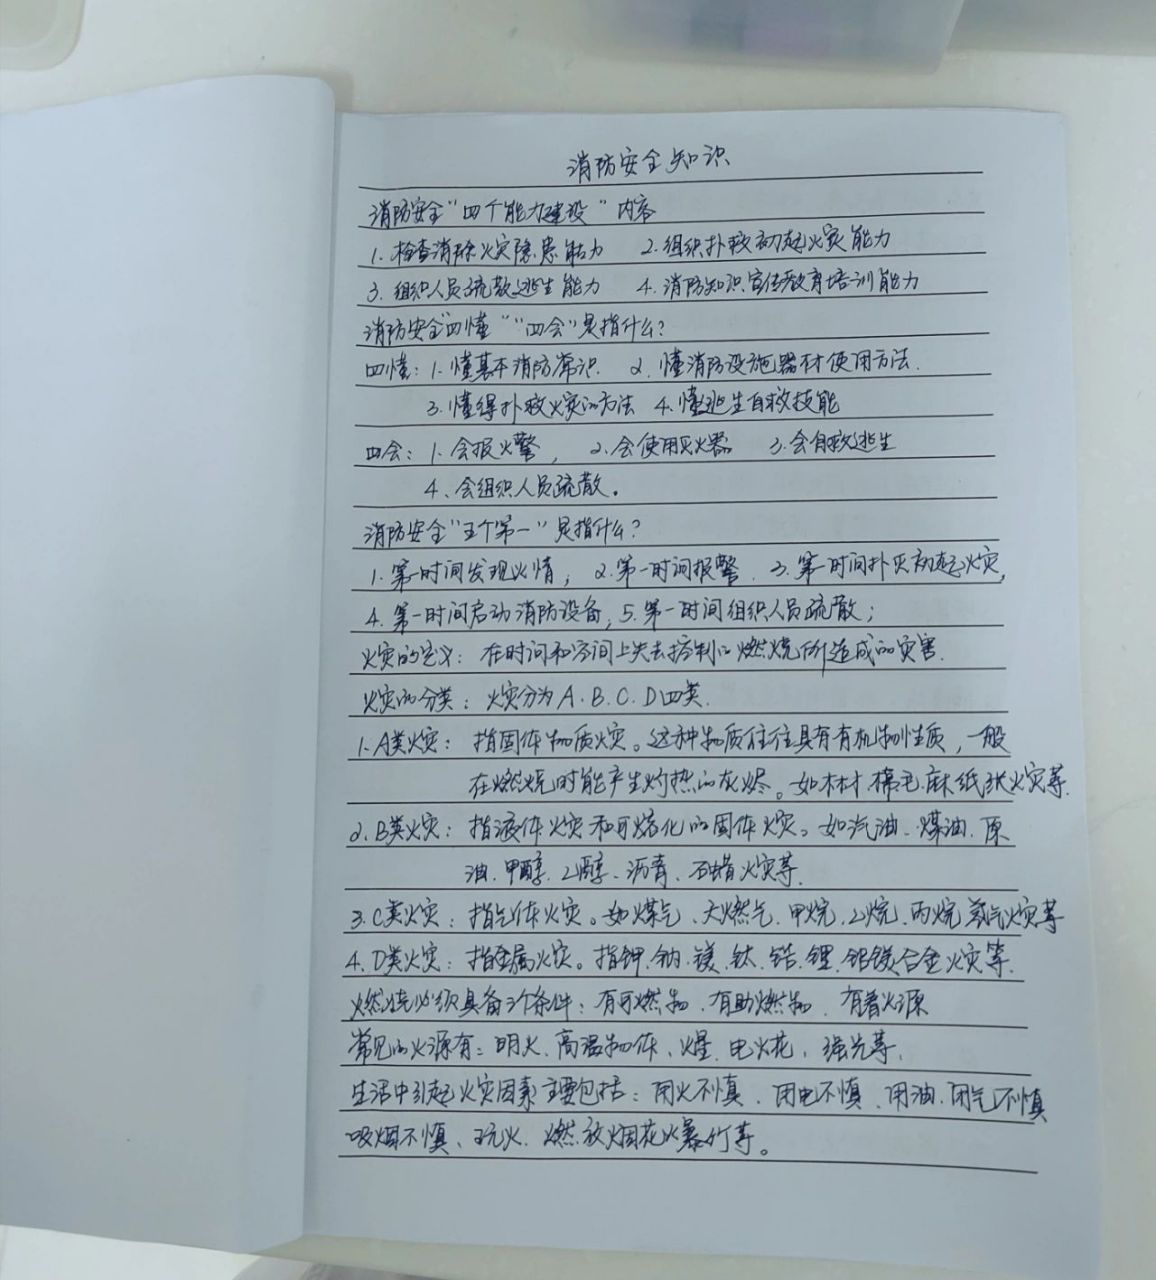 消防安全知识
消防安全"四个能力建设"内容
1. 检查消除火灾隐患能力 2. 组织扑救初起火灾能力
3. 组织人员疏散逃生能力 4. 消防知识宣传教育培训能力
消防安全"四懂""四会"是指什么?
四懂：1. 懂基本消防常识. 2. 懂消防设施器材使用方法.
3. 懂得扑救火灾的方法 4. 懂逃生自救技能
四会：1. 会报火警， 2. 会使用灭火器 3. 会自救逃生
4、会组织人员疏散。
消防安全"五个第一"是指什么?
1. 第一时间发现火情； 2. 第一时间报警. 3. 第一时间扑灭初起火灾,
4. 第一时间启动消防设备, 5. 第一时间组织人员疏散；
火灾的定义：在时间和空间上失去控制的燃烧所造成的灾害.
火灾的分类：火灾分为A.B.C.D四类.
1. A类火灾：指固体物质火灾。这种物质往往具有有机物性质，一般
在燃烧时能产生灼热的灰烬。如木材.棉.毛.麻.纸张火灾等.
2. B类火灾：指液体火灾和可熔化的固体火灾。如汽油、煤油、原
油.甲醇.乙醇、沥青、石蜡火灾等.
3. C类火灾：指气体火灾。如煤气、天燃气.甲烷.乙烷.丙烷.氢气火灾等
4. D类火灾：指金属火灾。指钾.钠.镁.钛.锆.锂.铝镁合金火灾等.
燃烧必须具备3个条件：有可燃物.有助燃物.有着火源
常见的火源有：明火、高温物体、火星.电火花、强光等.
生活中引起火灾因素主要包括：用火不慎、用电不慎、用油.用气不慎
吸烟不慎、玩火、燃放烟花火暴竹等。